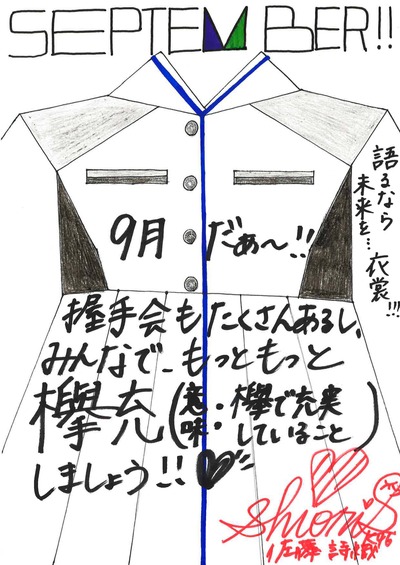 SEPTEMBER!!
語るなら
未来を…衣裳!!!
9月だぁ〜!!
握手会もたくさんあるし、
みんなで、もっともっと
欅充(意味・欅で充実していること)
しましょう!!
Shiori.S
佐藤 詩織